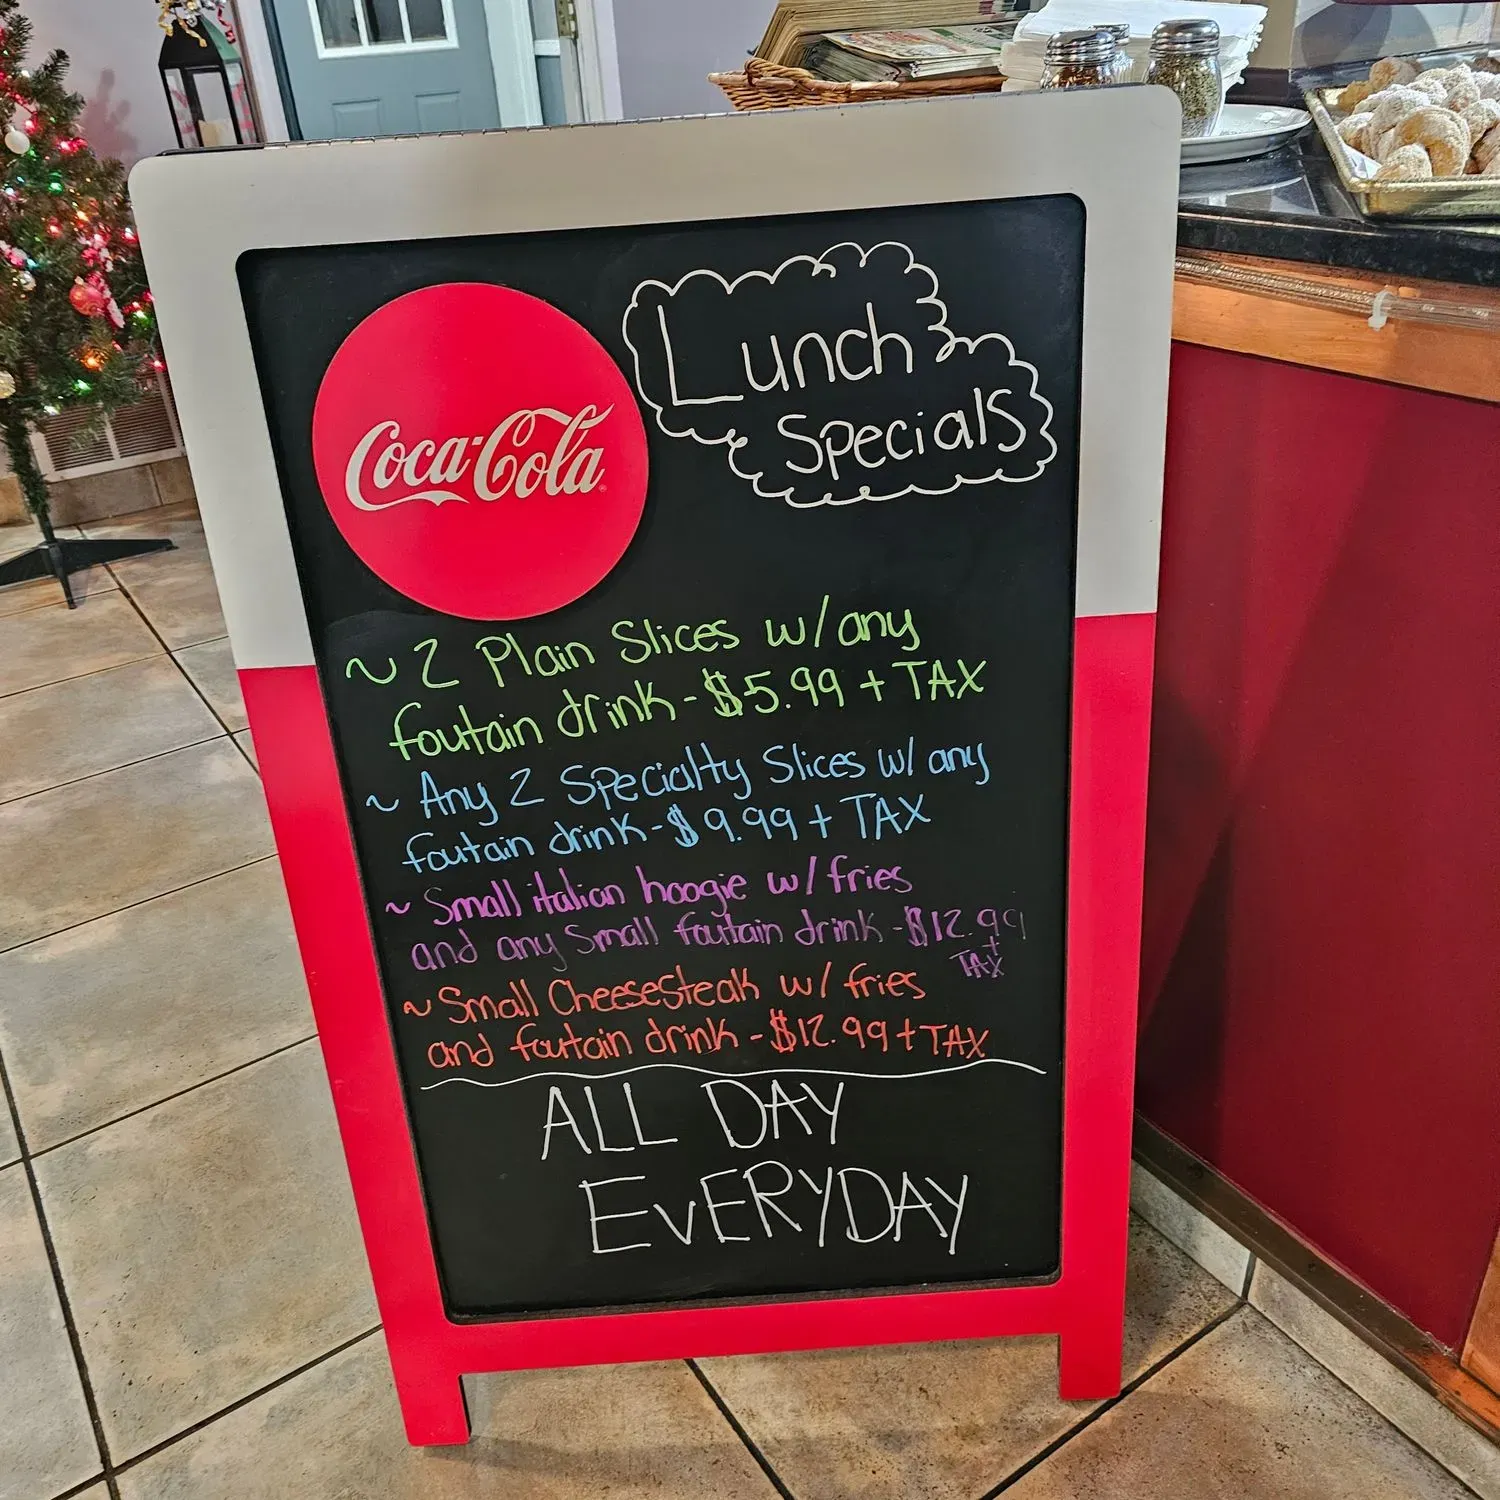 Coca-Cola
Lunch
Specials
~ 2 Plain Slices w/any
foutain drink - $5.99 + TAX
~ Any 2 Specialty Slices w/ any
foutain drink - $9.99 + TAX
~ Small italian hoogie w/ fries
and any small foutain drink - $12.99
+
TAX
~ Small Cheesesteak w/ fries
and foutain drink - $12.99 + TAX
ALL DAY
EvERYDAY